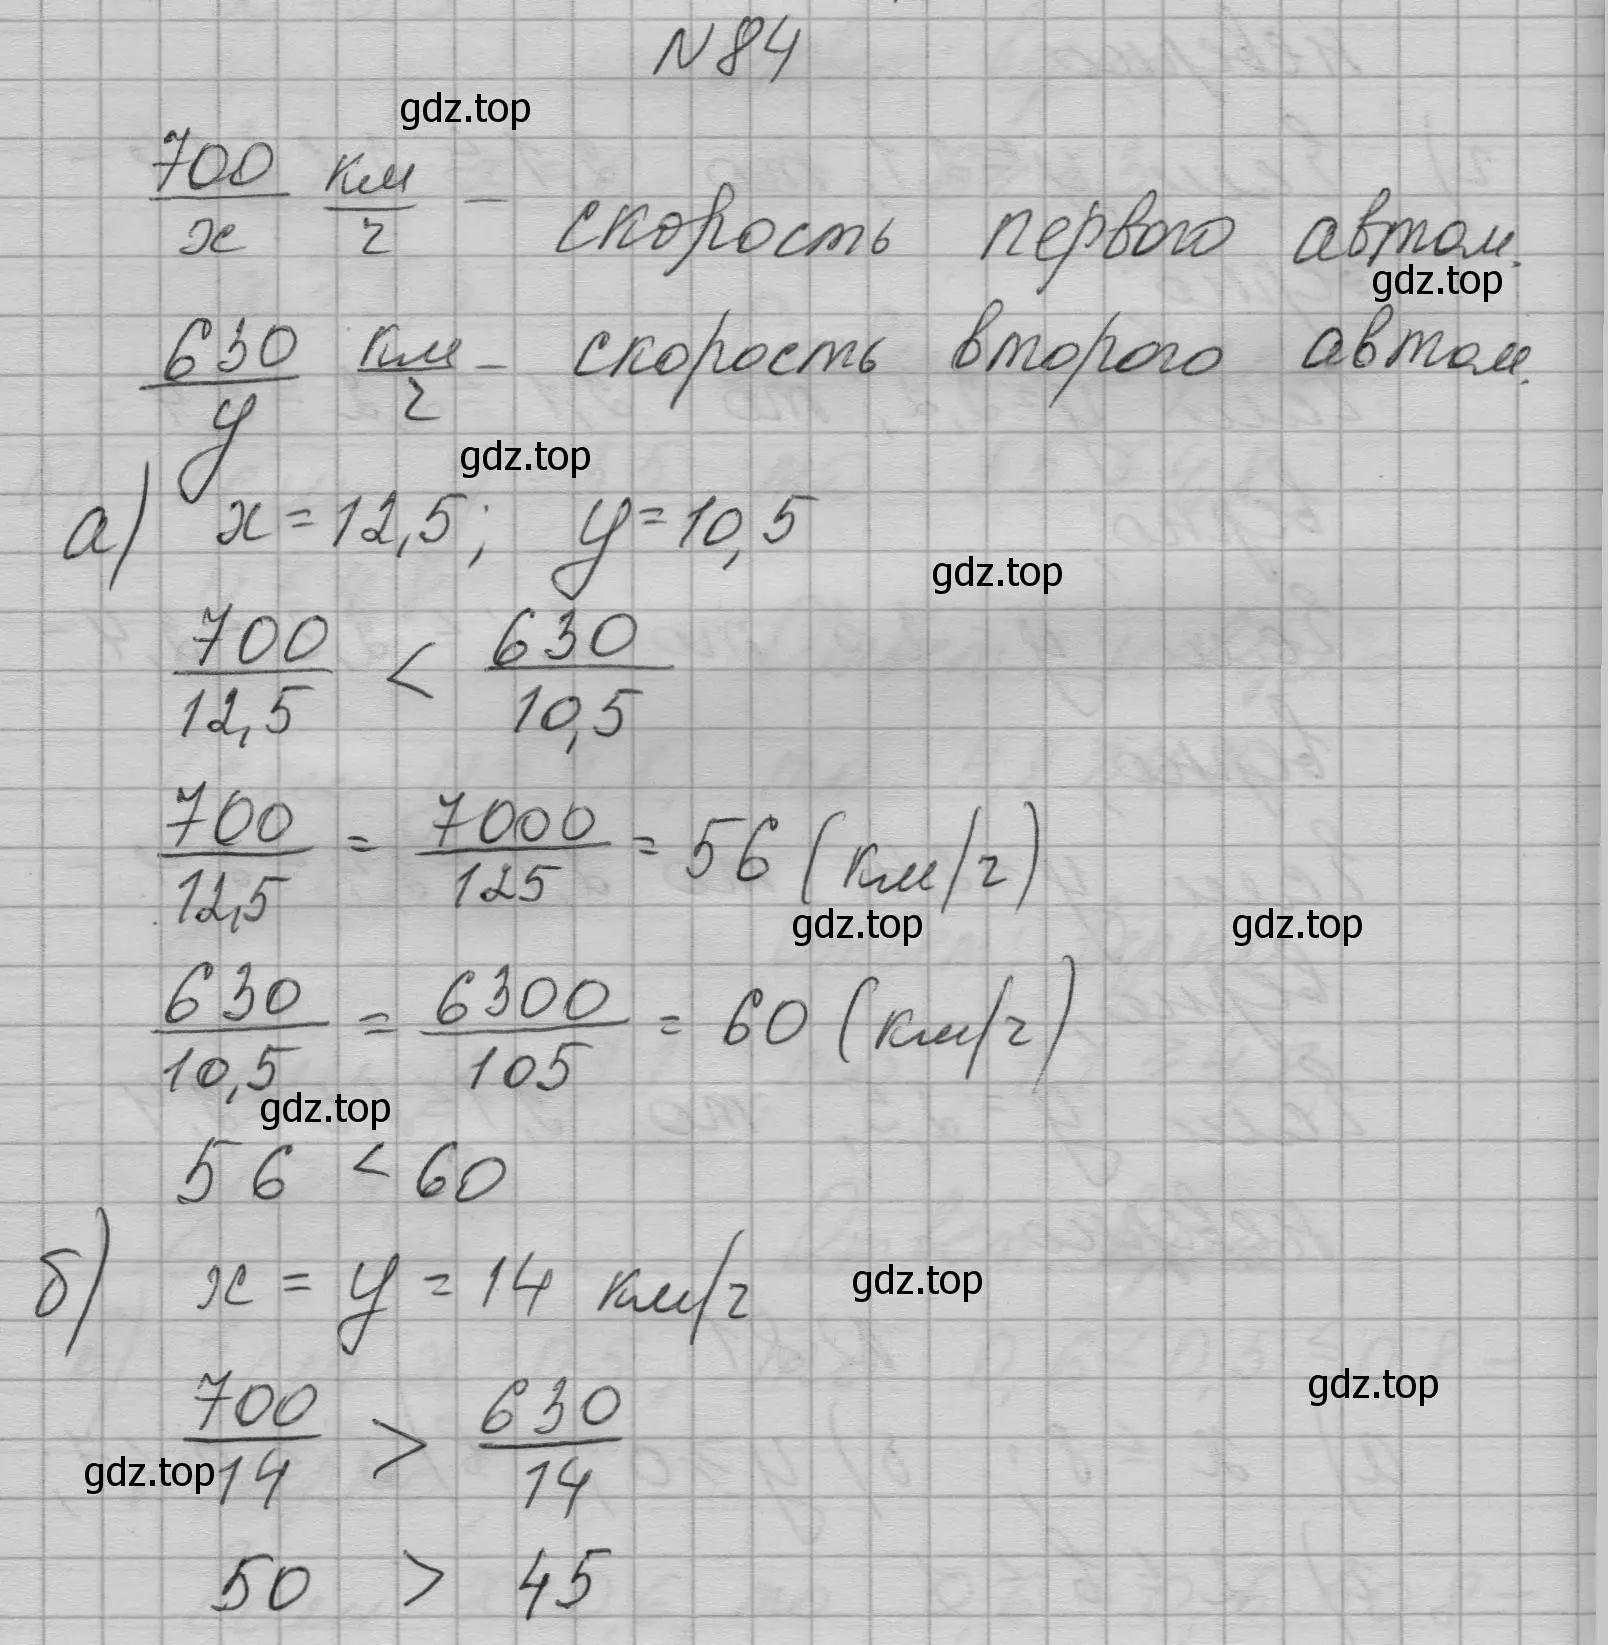 N84
gdz.top
700/x км/ч – скорость первого автом.
gdz.top
630/y км/ч – скорость второго автом.
gdz.top
а) x = 12,5; y = 10,5
gdz.top
700/12,5 < 630/10,5
700/12,5 = 7000/125 = 56 (км/ч)
gdz.top gdz.top
630/10,5 = 6300/105 = 60 (км/ч)
gdz.top
56 < 60
б) x = y = 14 км/ч
gdz.top
gdz.top
700/14 > 630/14
gdz.top
50 > 45